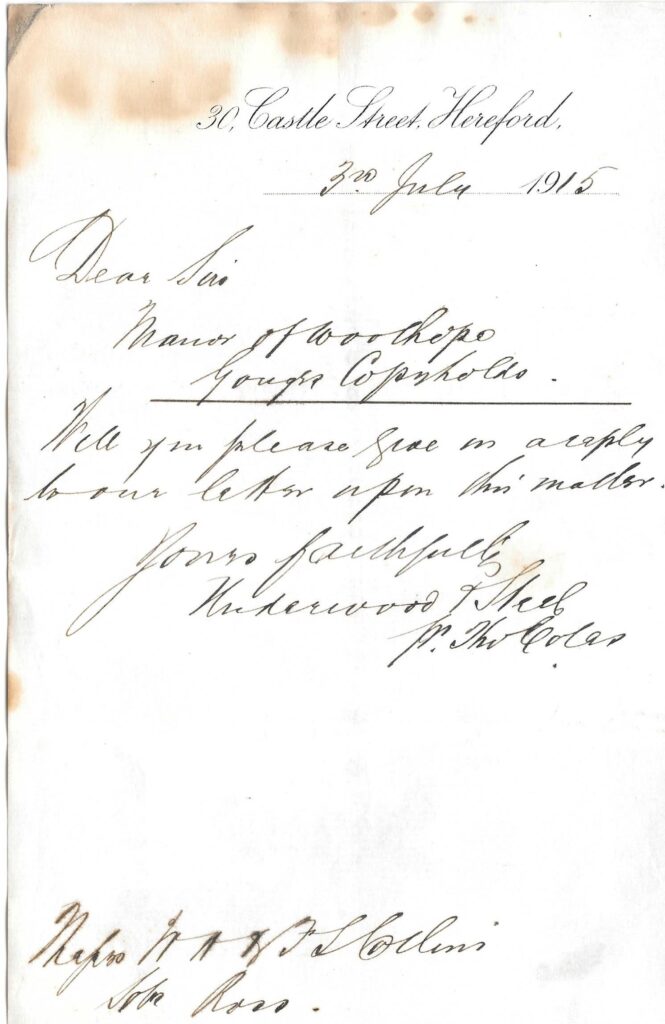 30, Castle Street, Hereford,
3rd July 1915
Dear Sirs
Manor of Woolhope
Gouges Copyholds.
Will you please give us a reply
to our letter upon this matter.
Yours faithfully
Underwood & Steel
pr. Tho Colas
Messrs W H & F S Collins
Solrs Ross.